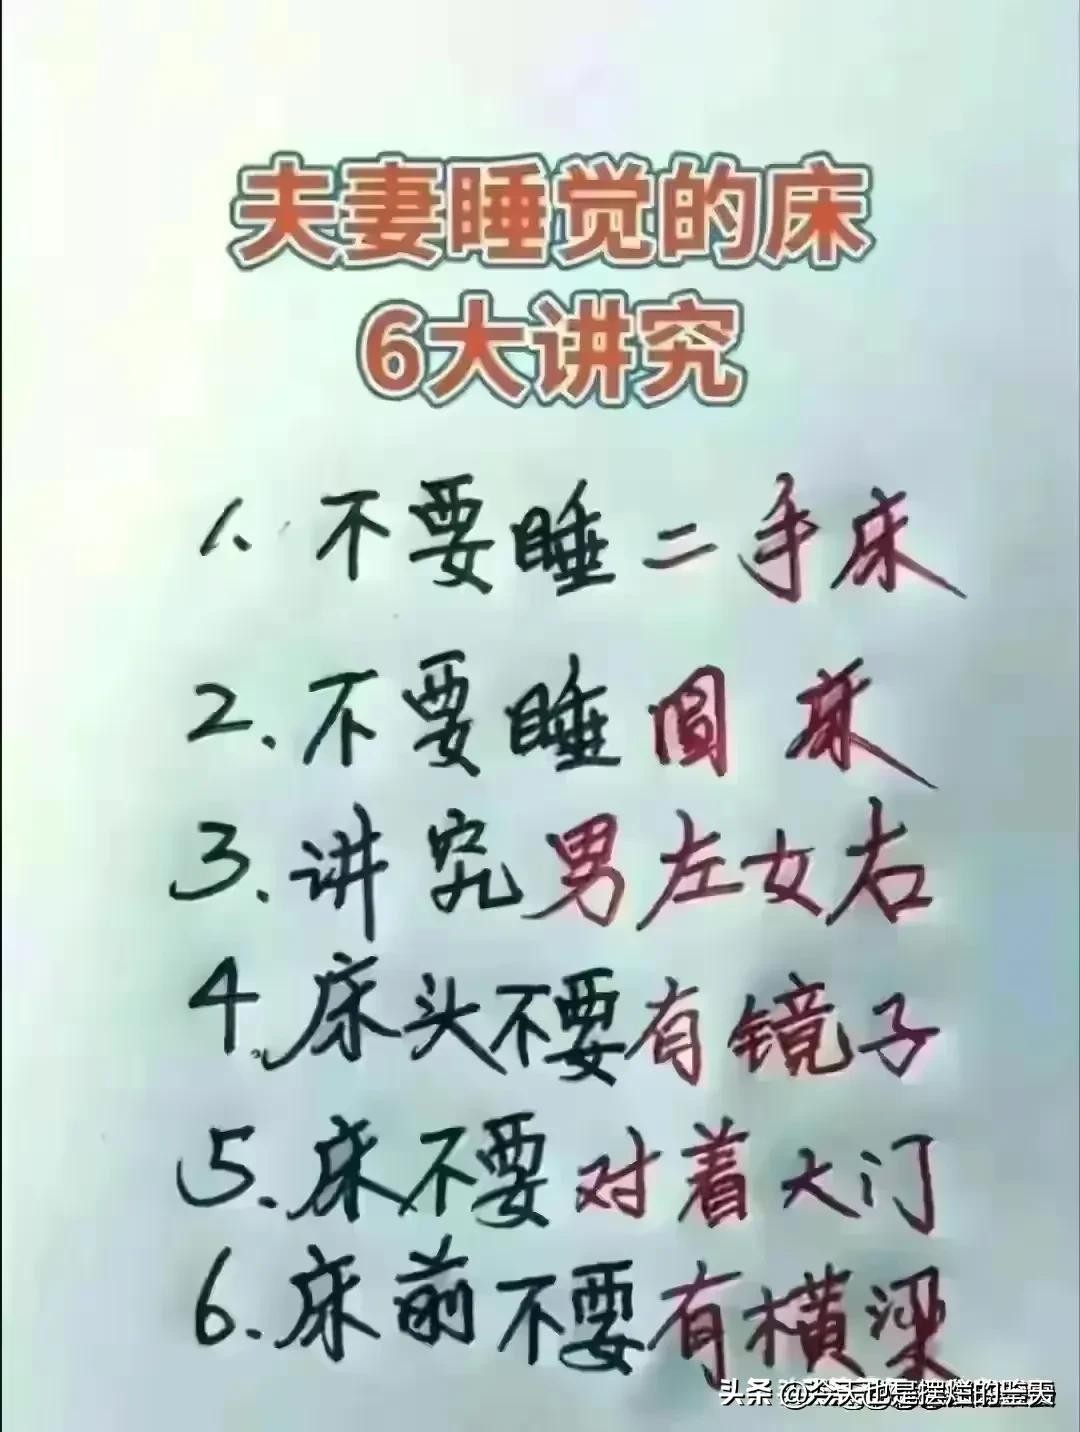 夫妻睡觉的床
6大讲究
1. 不要睡二手床
2. 不要睡圆床
3. 讲究男左女右
4. 床头不要有镜子
5. 床不要对着大门
6. 床前不要有横梁
头条 @今天也是摆烂的一天